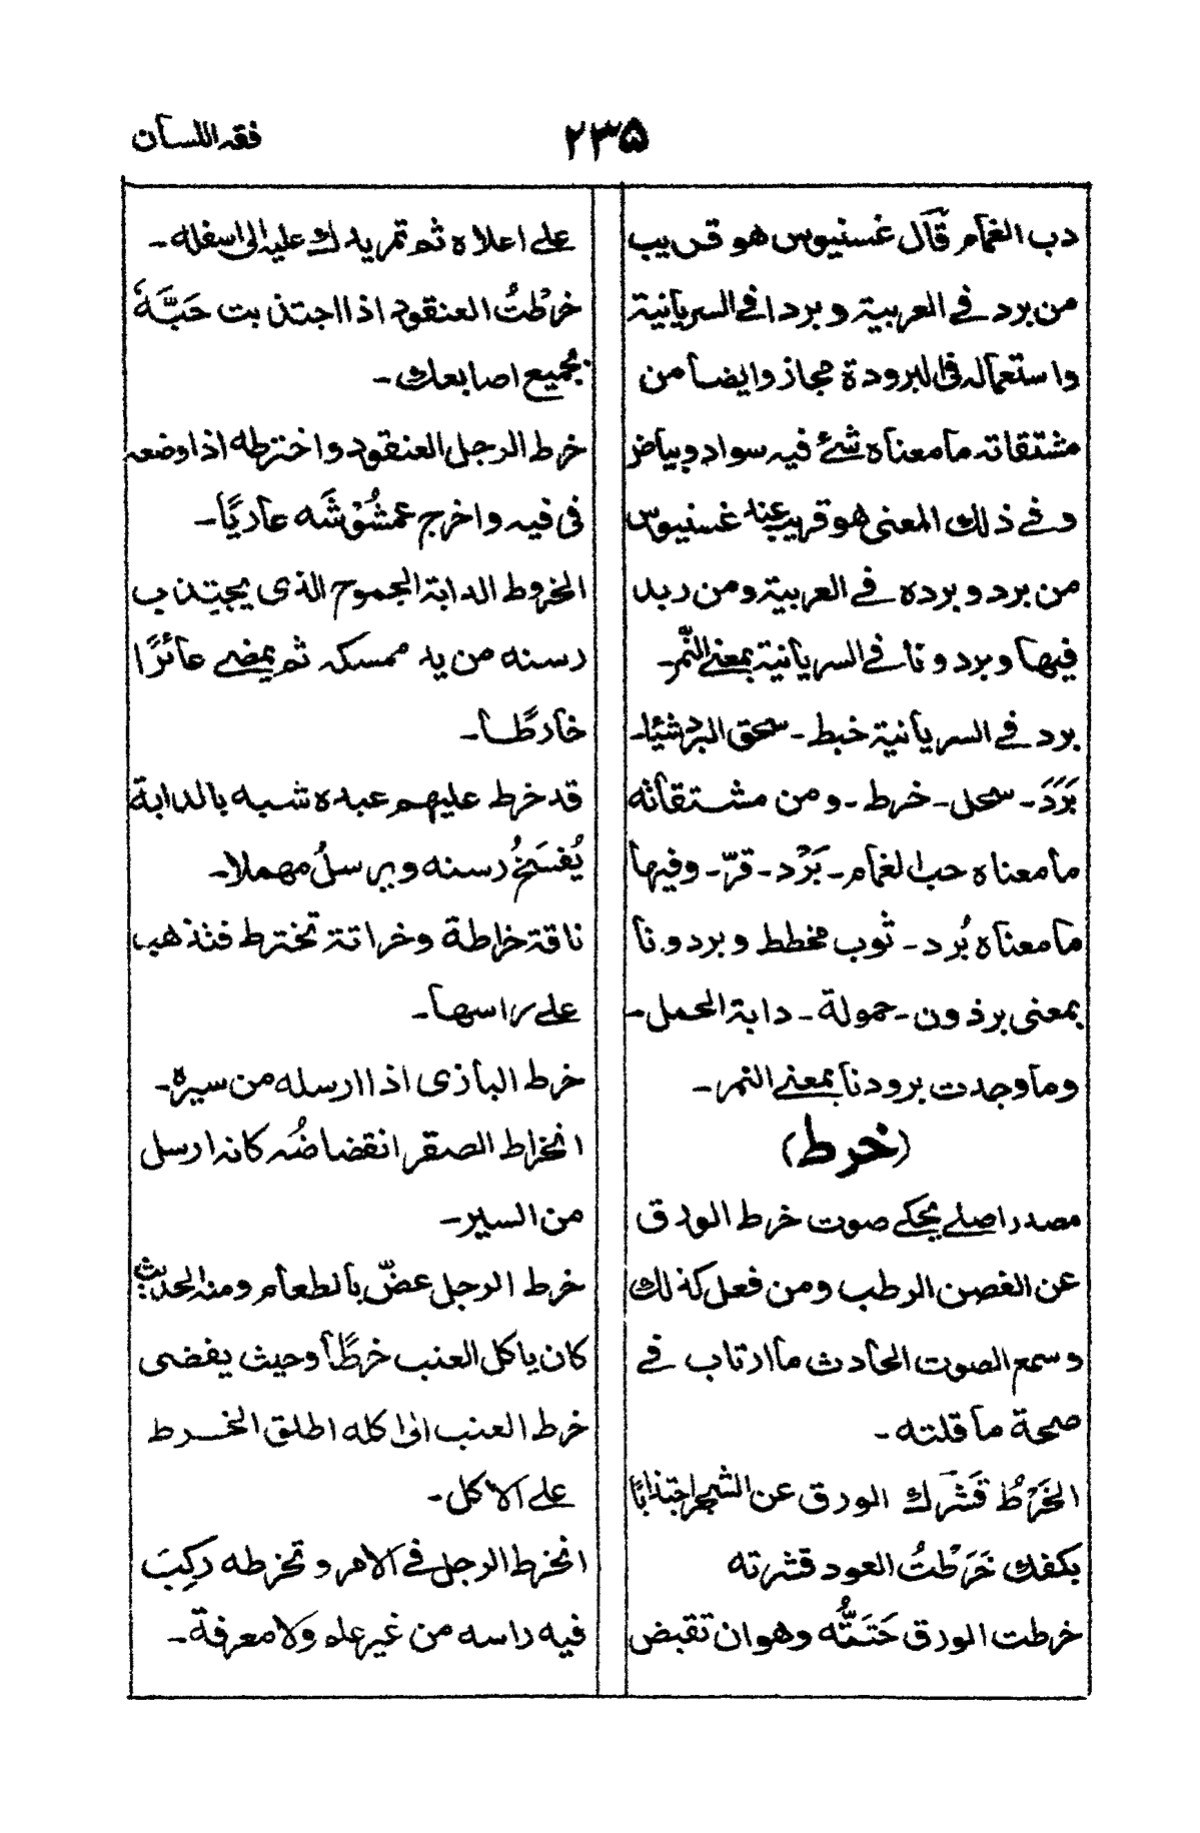 فقہ اللسان
۲۳۵
دب الغمام قال غسنيوس هو قريب
من برد في العربية و بردا في السريانية
واستعماله في البرودة مجاز وايضا من
مشتقاته ما معناه شئ فيه سواد وبياض
و في ذلك المعنى هو قريب عند غسنيوس
من برد و برده في العربية ومن ربد
فيها و برد ونا في السريانية بمعنى النَّمر۔
برد في السريانية خبط۔ سحق البرد شيئا۔
بَرَدَ۔ سحل۔ خرط۔ ومن مشتقاته
ما معناه حب الغمام۔ بَرْد۔ قرّ۔ وفيها
ما معناه بُرد۔ ثوب مخطط و بردونا
بمعنى برذون۔ حمولة۔ دابة المحمل۔
وما وجدت برودنا بمعنى النمر۔
(خرط)
مصدر اصلي يحكي صوت خرط الورق
عن الغصن الرطب ومن فعل كذلك
وسمع الصوت الحادث ما ارتاب في
صحة ما قلته۔
الخَرْطُ قَشْرك الورق عن الشجر اجتذابًا
بكفك خَرَطْتُ العود قشرته
خرطت الورق حَتَتُّه وهو ان تقبض
على اعلاه ثم تمر يدك عليه الى اسفله۔
خرطْتُ العنقود اذا اجتذبت حَبَّهٗ
بجميع اصابعك۔
خرط الرجل العنقود واخترطه اذا وضعه
في فيه واخرج عمشُوْشَه عاريًا۔
الخروط الدابة الجموح الذى يجتذب
رسنه من يد ممسكه ثم يمضي عائرًا
خارطًا۔
قد خرط عليهم عبده شبه بالدابة
يُفسَخُ رسنه ويرسلُ مهملا۔
ناقة خراطة وخراتة تخترط فتذهب
على راسها۔
خرط البازى اذا ارسله من سيره۔
انخراط الصقر انقضاضُه كانه ارسل
من السير۔
خرط الرجل عضّ بالطعام ومنه الحديث
كان ياكل العنب خرطًا وحيث يفضى
خرط العنب الى اكله اطلق الخرط
على الاكل۔
انخرط الرجل في الامر و تخرطه ركِبَ
فيه راسه من غير علم ولا معرفة۔